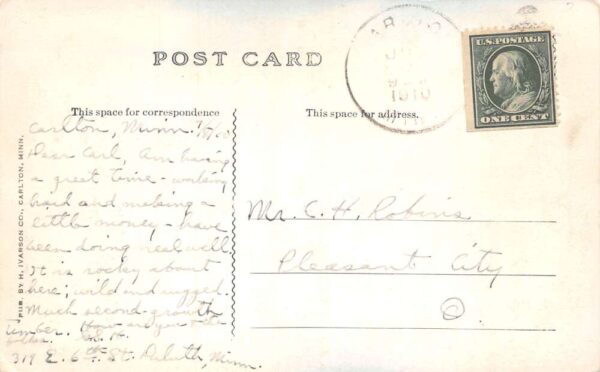 POST CARD
ARLTO
1910
U.S. POSTAGE
ONE CENT
This space for correspondence
This space for address.
PUB. BY H. IVARSON CO., CARLTON, MINN.
Carlton, Minn.
Dear Carl, Am having
a great time - working
hard and making a
little money - have
been doing real well.
It is rocky about
here; wild and rugged.
Much second-growth
timber. How are you & the
folks.
319 E. 6th St. Duluth, Minn.
Mr. C. H. Robins
Pleasant City
O